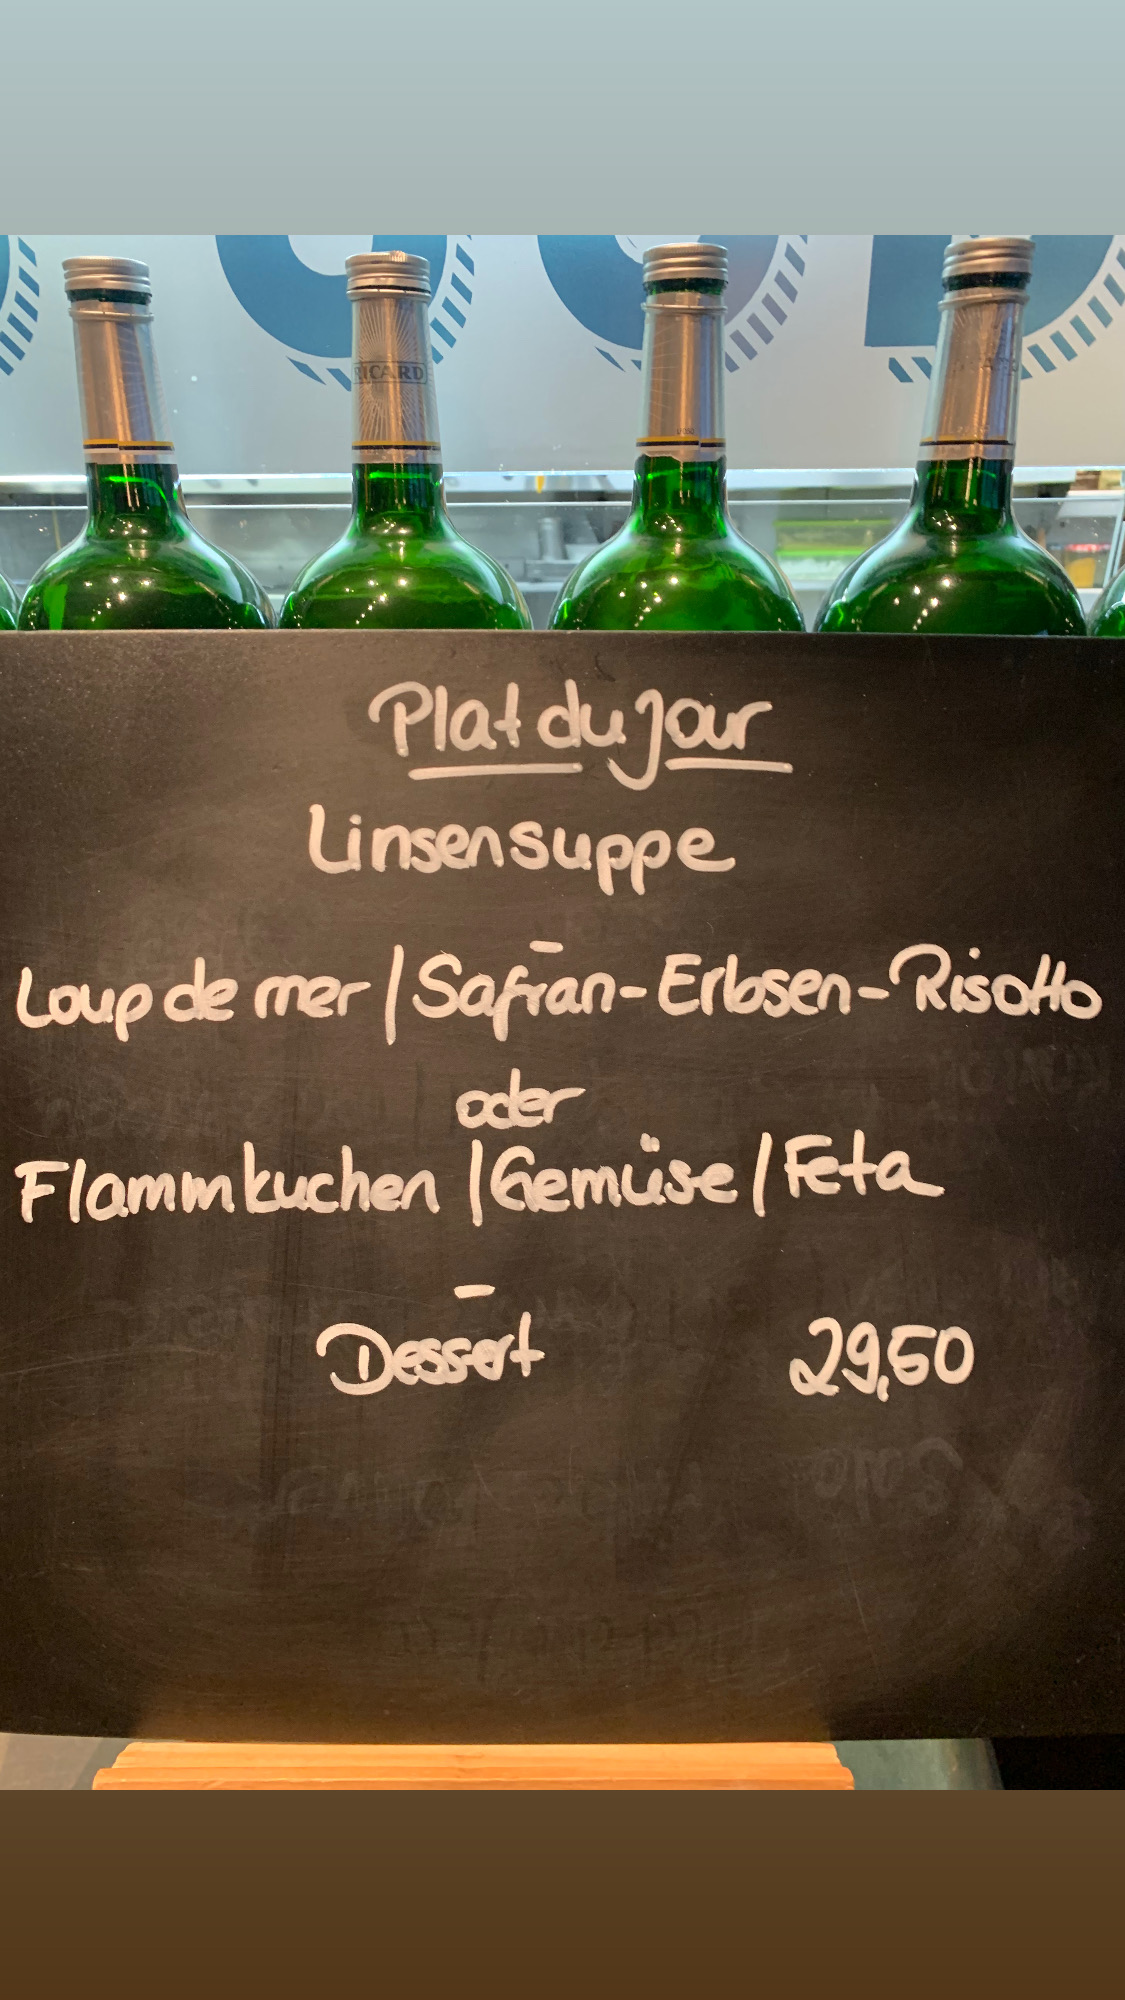 RICARD
Plat du jour
Linsensuppe
-
Loup de mer / Safran-Erbsen-Risotto
oder
Flammkuchen / Gemüse / Feta
-
Dessert 29,50